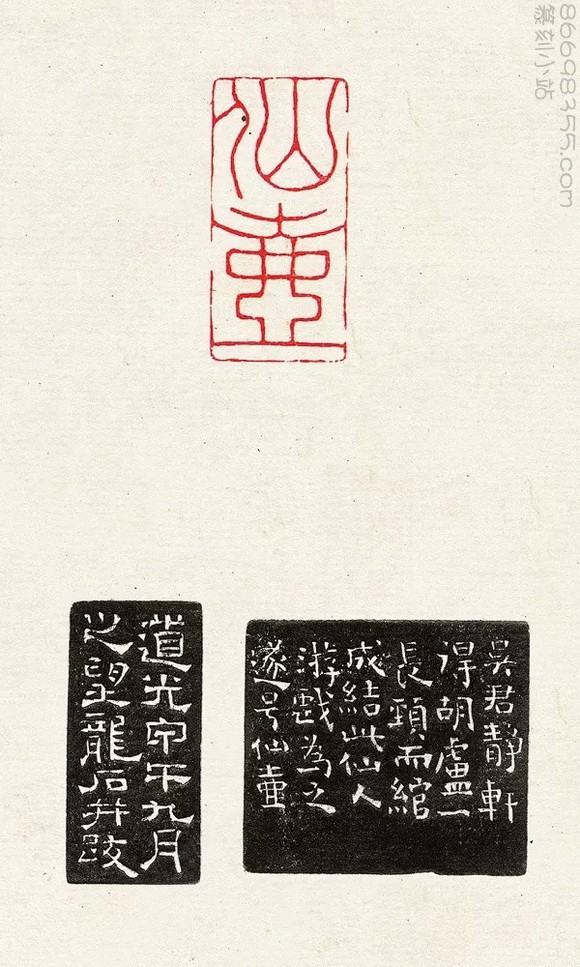 仙壺
吳君靜軒
得胡盧一
長頸而綰
成結此仙人
游戲為之
遂号仙壷
道光甲午九月
之望龍石并跋
86698355.com
篆刻小站